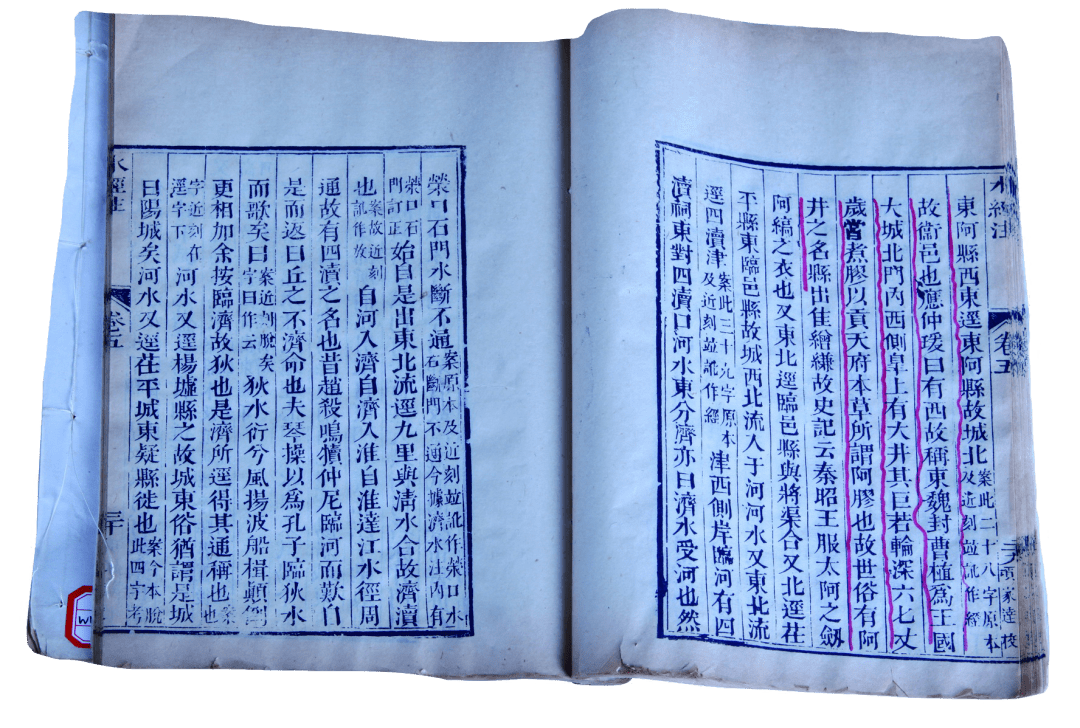 水經注 卷五 項家達校
東阿縣西東逕東阿縣故城北案此二十八字原本及近刻竝訛作經
故衞邑也應仲瑗曰有西故稱東魏封曹植爲王國
大城北門內西側臯上有大井其巨若輪深六七丈
歲嘗煮膠以貢天府本草所謂阿膠也故世俗有阿
井之名縣出佳繒縑故史記云秦昭王服太阿之劒
阿縞之衣也又東北逕臨邑縣與將渠合又北逕茌
平縣東臨邑縣故城西北流入于河河水又東北流
逕四瀆津案此三十九字原本及近刻竝訛作經津西側岸臨河有四
瀆祠東對四瀆口河水東分濟亦曰濟水受河也然
滎口石門水斷不通案原本及近刻竝訛作滎口水石斷門不通今據濟水注內有
滎口石門訂正始自是出東北流逕九里與清水合故濟瀆
也案故近刻訛作故自河入濟自濟入淮自淮達江水徑周
通故有四瀆之名也昔趙殺鳴犢仲尼臨河而歎自
是而返曰丘之不濟命也夫琴操以爲孔子臨狄水
而歌矣曰案近刻脫矣字曰作云狄水衍兮風揚波船楫顛倒
更相加余按臨濟故狄也是濟所逕得其通稱也案也
字近刻在逕字下河水又逕楊墟縣之故城東俗猶謂是城
曰陽城矣河水又逕茌平城東疑縣徙也案今本脫此四字考
水經注 卷五 二十